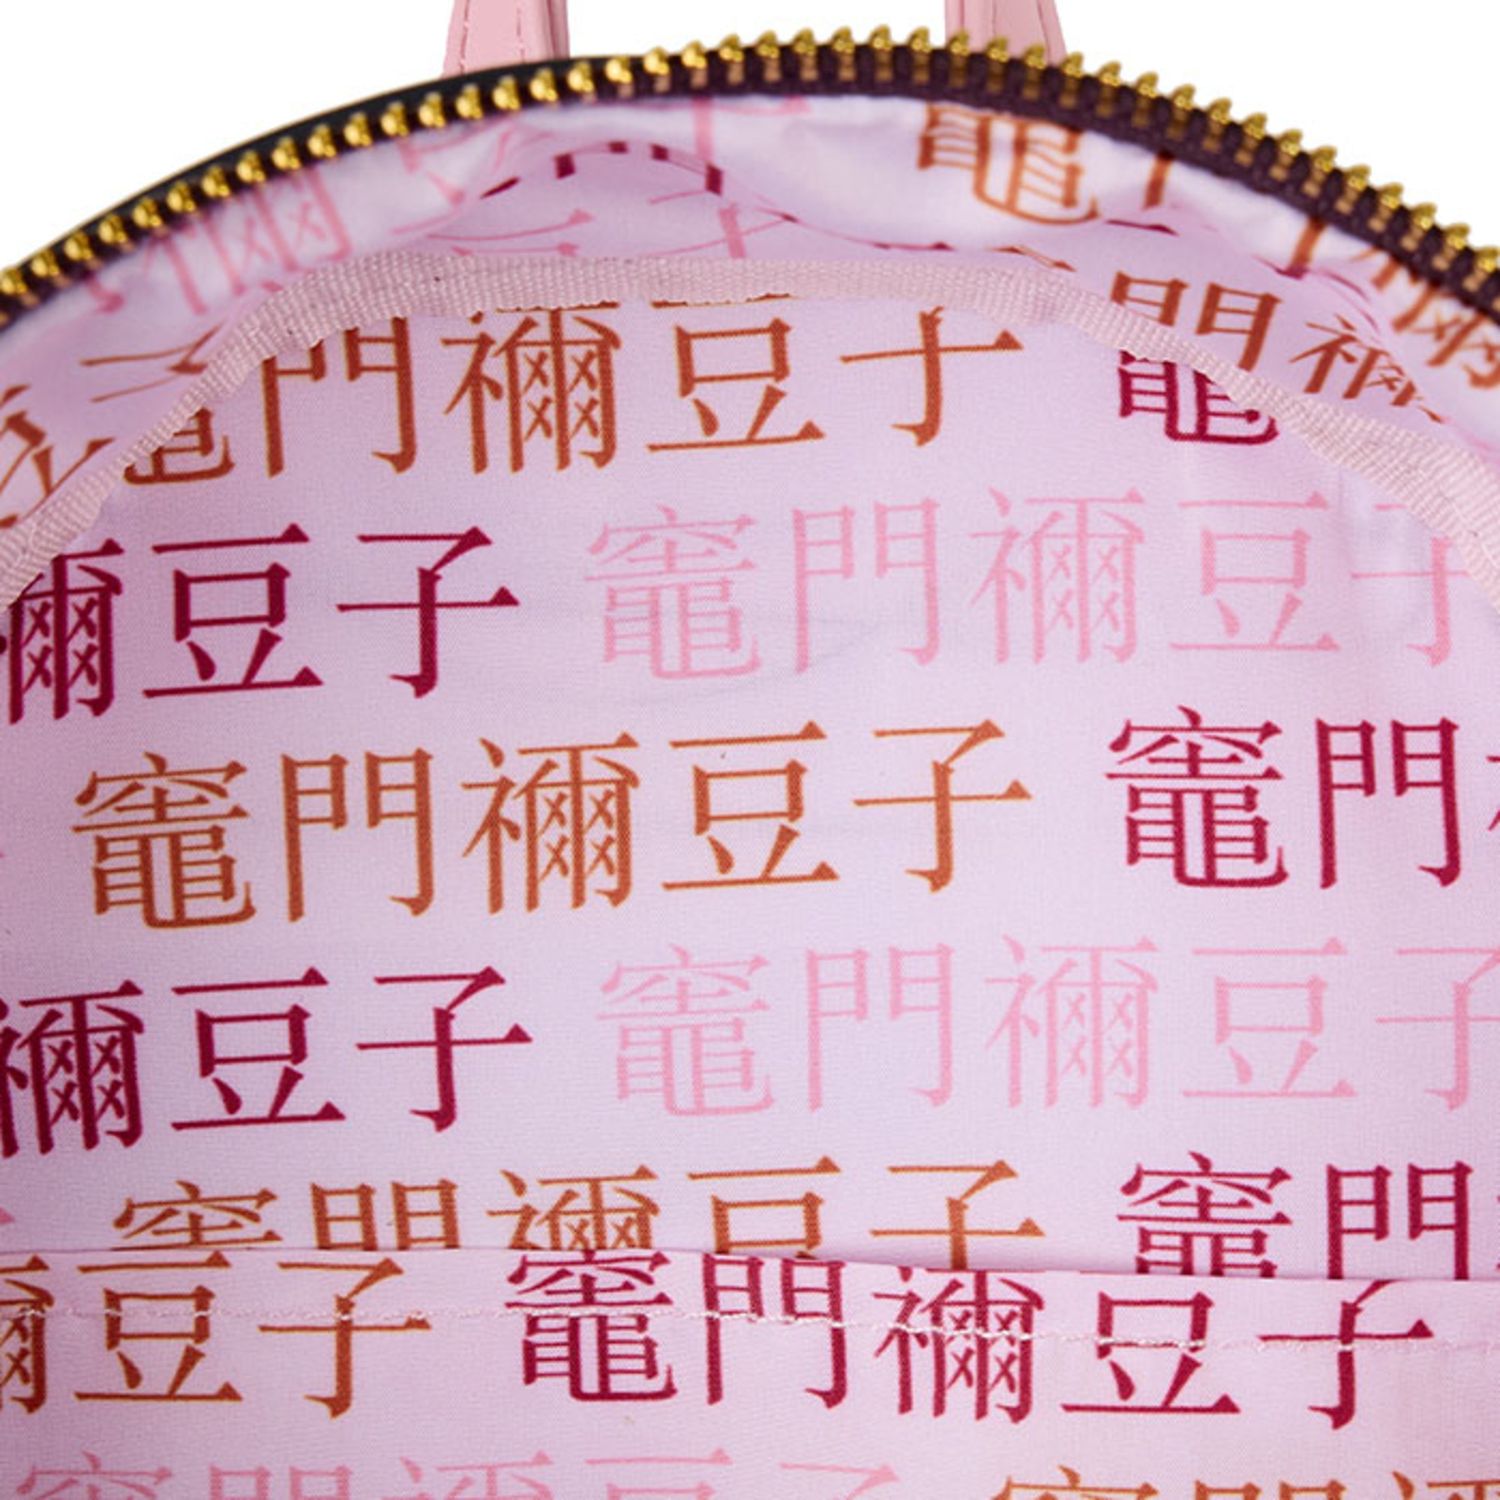 竈門禰豆子 竈門禰
禰豆子 竈門禰豆子
竈門禰豆子 竈門
禰豆子 竈門禰豆子
竈門禰豆子 竈門
禰豆子 竈門禰豆子
竈門禰豆子 竈門禰